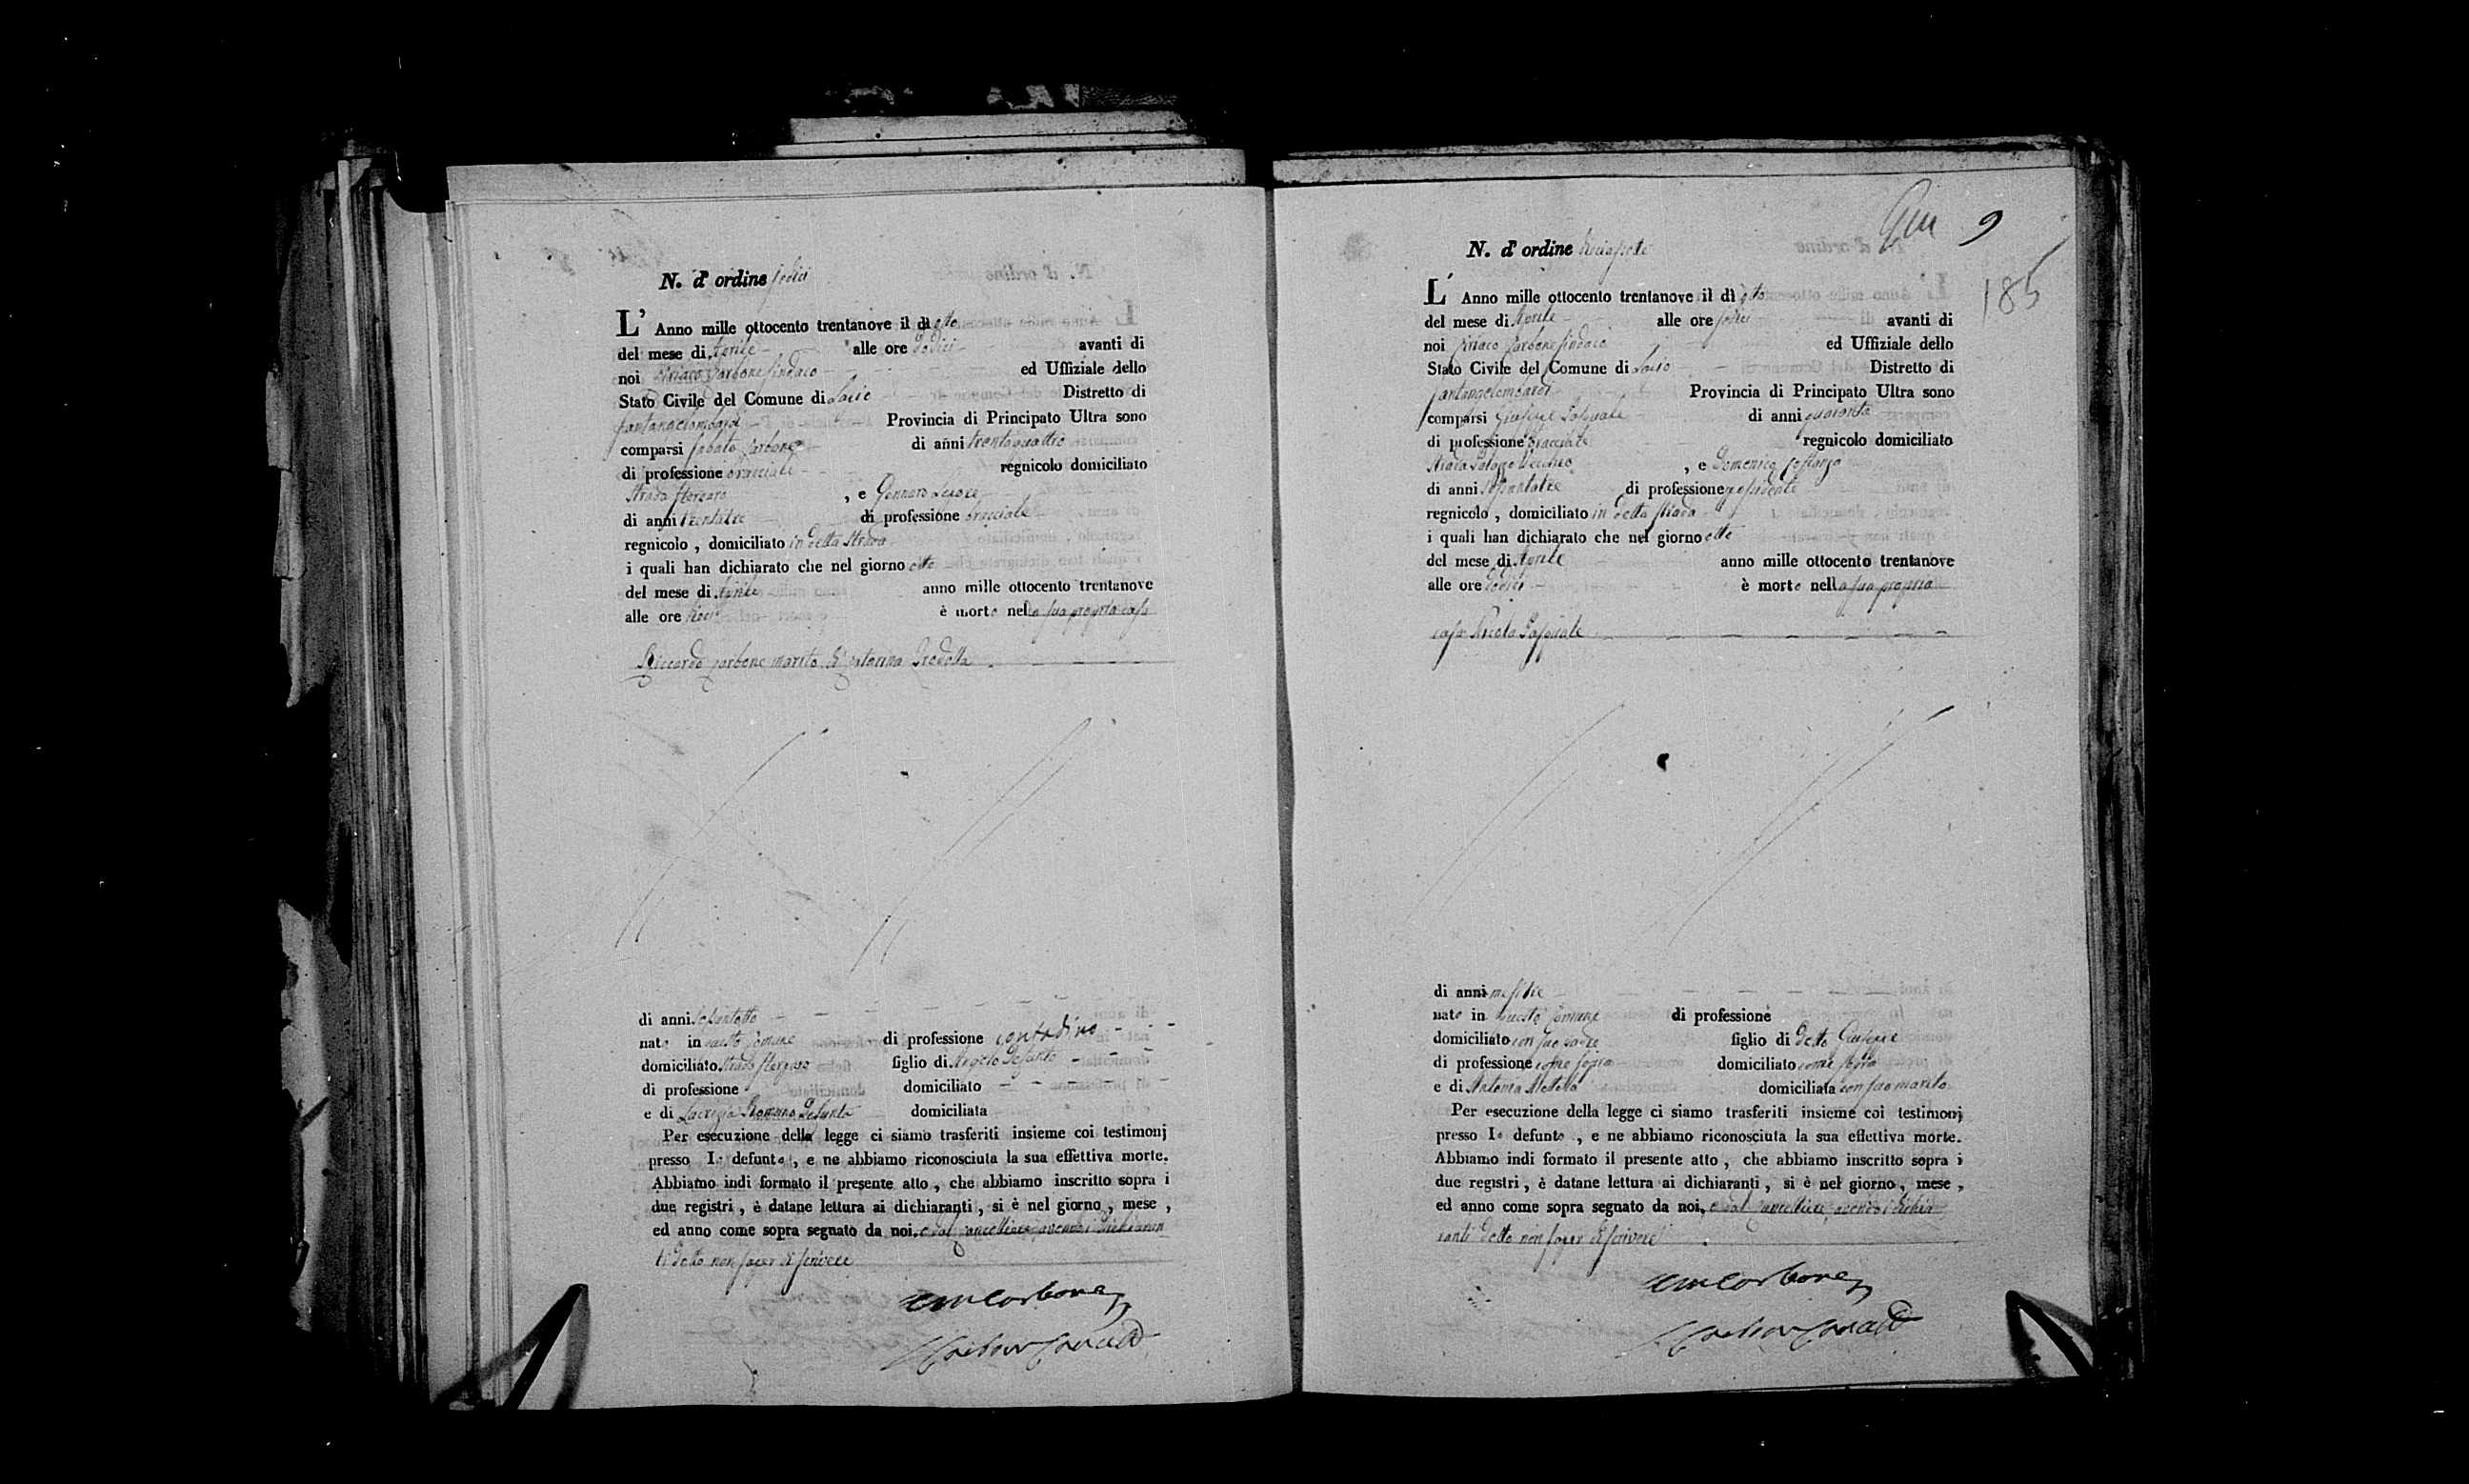 N. d'ordine sedici
L' Anno mille ottocento trentanove il dì otto
del mese di Aprile alle ore dodici avanti di
noi Ciriaco Carbone Sindaco ed Uffiziale dello
Stato Civile del Comune di Lacio Distretto di
Santangelombardi Provincia di Principato Ultra sono
comparsi Sabato Carbone di anni trentaquattro
di professione bracciale regnicolo domiciliato
Strada , e Gennaro
di anni trentatre di professione bracciale
regnicolo , domiciliato in detta Strada
i quali han dichiarato che nel giorno otto
del mese di Aprile anno mille ottocento trentanove
alle ore è morto nella sua propria casa
Riccardo Carbone marito di Caterina
di anni sessantotto
nato in questo Comune di professione contadino
domiciliato Strada figlio di Angelo defunto
di professione domiciliato
e di Lucrezia Romano defunta domiciliata
Per esecuzione della legge ci siamo trasferiti insieme coi testimonj
presso Lo defunto , e ne abbiamo riconosciuta la sua effettiva morte.
Abbiamo indi formato il presente atto , che abbiamo inscritto sopra i
due registri , è datane lettura ai dichiaranti , si è nel giorno , mese ,
ed anno come sopra segnato da noi, e dal Cancelliere avendo i dichiaran
ti detto non saper di scrivere
Carbone
9
185
N. d'ordine diciassette
L' Anno mille ottocento trentanove il dì otto
del mese di Aprile alle ore sedici avanti di
noi Ciriaco Carbone Sindaco ed Uffiziale dello
Stato Civile del Comune di Lacio Distretto di
Santangelombardi Provincia di Principato Ultra sono
comparsi Giuseppe Pasquale di anni quaranta
di professione bracciale regnicolo domiciliato
Strada Palazzo Vecchio , e Domenico Costanzo
di anni sessantatre di professione possidente
regnicolo , domiciliato in detta Strada
i quali han dichiarato che nel giorno otto
del mese di Aprile anno mille ottocento trentanove
alle ore dodici è morto nella sua propria
casa Nicola Pasquale
di anni mesi tre
nato in questo Comune di professione
domiciliato con suo padre figlio di detto Giuseppe
di professione come sopra domiciliato come sopra
e di Antonia domiciliata con suo marito
Per esecuzione della legge ci siamo trasferiti insieme coi testimonj
presso Lo defunto , e ne abbiamo riconosciuta la sua effettiva morte.
Abbiamo indi formato il presente atto , che abbiamo inscritto sopra i
due registri , è datane lettura ai dichiaranti , si è nel giorno , mese ,
ed anno come sopra segnato da noi, e dal Cancelliere avendo i dichia
ranti detto non saper di scrivere
Carbone